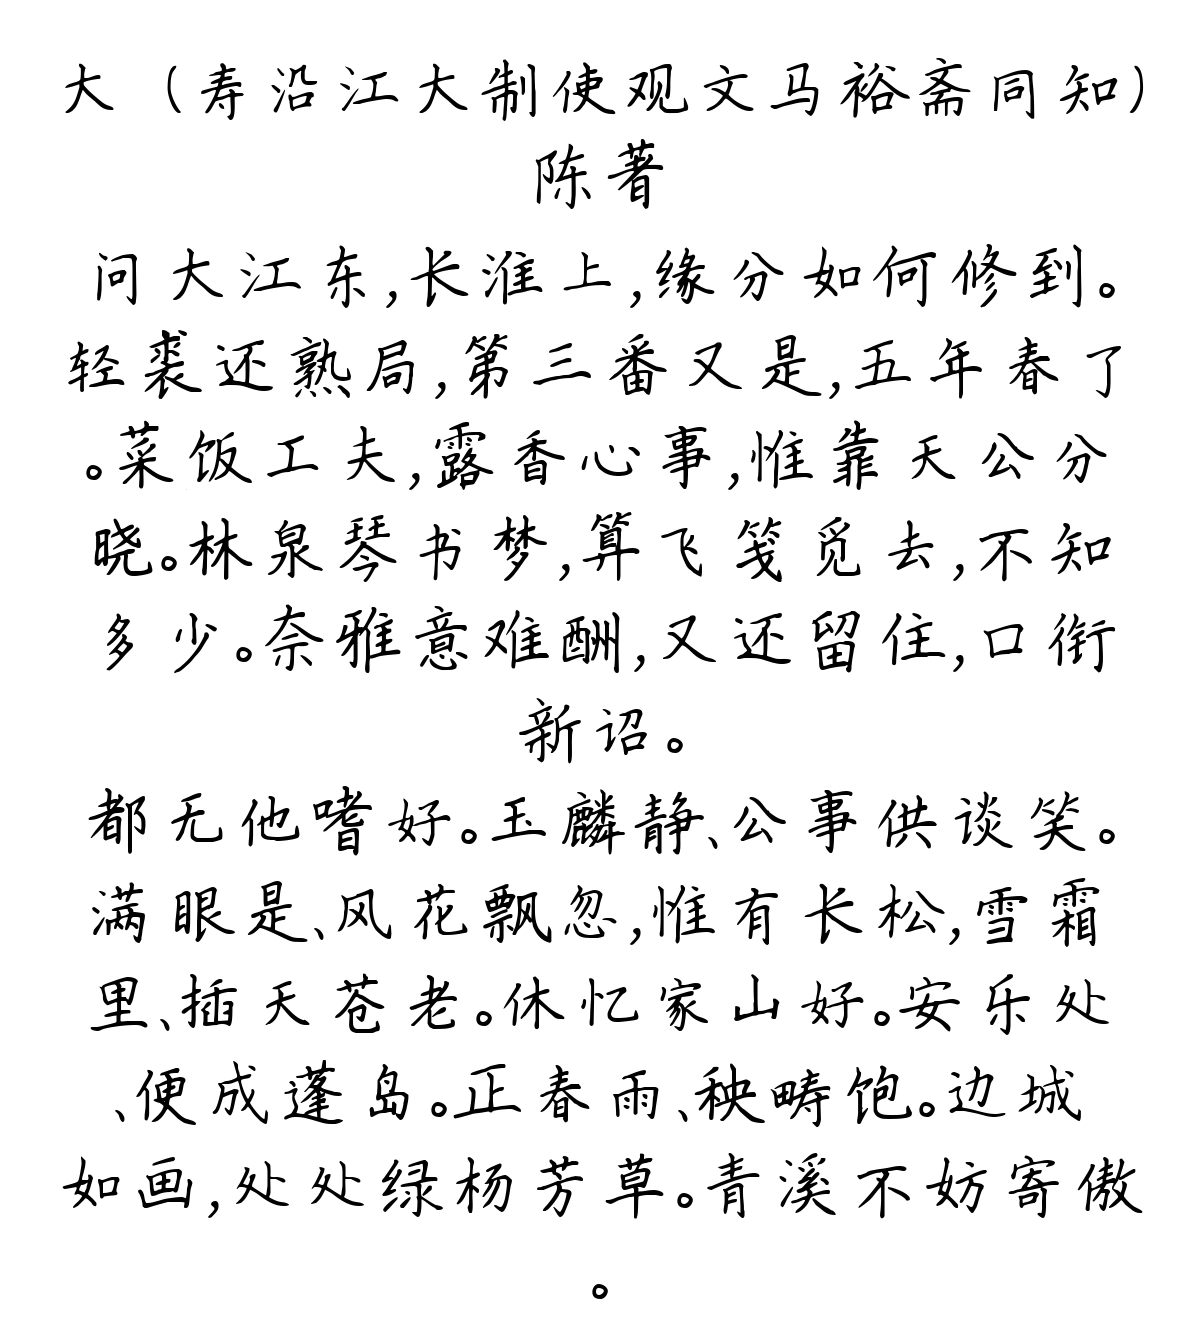 大（寿沿江大制使观文马裕斋同知）
陈著
问大江东,长淮上,缘分如何修到。
轻裘还熟局,第三番又是,五年春了
。菜饭工夫,露香心事,惟靠天公分
晓。林泉琴书梦,算飞笺觅去,不知
多少。奈雅意难酬,又还留住,口衔
新诏。
都无他嗜好。玉麟静、公事供谈笑。
满眼是、风花飘忽,惟有长松,雪霜
里、插天苍老。休忆家山好。安乐处
、便成蓬岛。正春雨、秧畴饱。边城
如画,处处绿杨芳草。青溪不妨寄傲
。